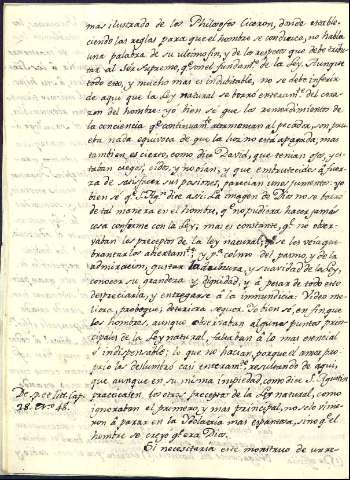 mas ilustrado de los Philosofos Ciceron, donde estable-
ciendo las reglas para que el hombre se conduzca, no habla
una palabra de su ultimo fin, y de los respetos que debe tribu-
tar al Sér Supremo, q.e son el fundam.to de la Ley. Aunque
todo esto, y mucho mas es indubitable, no se debe inferir
de aqui que la Ley natural se borró enteram.te del cora-
zon del hombre: yo bien sé que los remordimientos de
la conciencia q.e continuam.te atormentan al pecador, son prue-
ba nada equivoca de que la luz no está apagada, mas
tambien es cierto, como dice David, que tenian ojos, y es-
taban ciegos, oidos, y no oían, y que entretenidos á fuer-
za de satisfacer sus pasiones, parecian unos jumentos: yo
bien sé q.e S. Ag.n dice assi: La imagen de Dios no se borró
de tal manera en el hombre, q.e no pudiera hacer jamás
cosa conforme con la Ley; mas es constante, q.e no obser-
vaban los preceptos de la ley natural; q.e se los veia que-
brantarlos abiertam.te y p.r colmo del pasmo, y de la
admiracion, gustar la dulzura, y suavidad de la Ley,
conocer su grandeza y dignidad, y á pesar de todo esto
despreciarla, y entregarse á la inmundicia: Video me-
liora, proboque, deteriora sequor. Se bien sé, en fin que
los hombres, aunque observaban algunos puntos prin-
cipales de la Ley natural, faltaban á lo mas esencial
é indispensable; lo que no hacian, porque el amor pro-
prio los deslumbró casi enteram.te resultando de aqui,
que aunque en su misma impiedad, como dice S. Agustin
practicasen los otros preceptos de la Ley natural, como
ignoraban el primero, y mas principal, no solo vinie-
ron á parar en la Ydolatria mas espantosa, sino q.e el
hombre se creyó q.e era Dios.
De sp. et litt. cap.
28. n.o 48.
Si necesitaria este monstruo de urre-